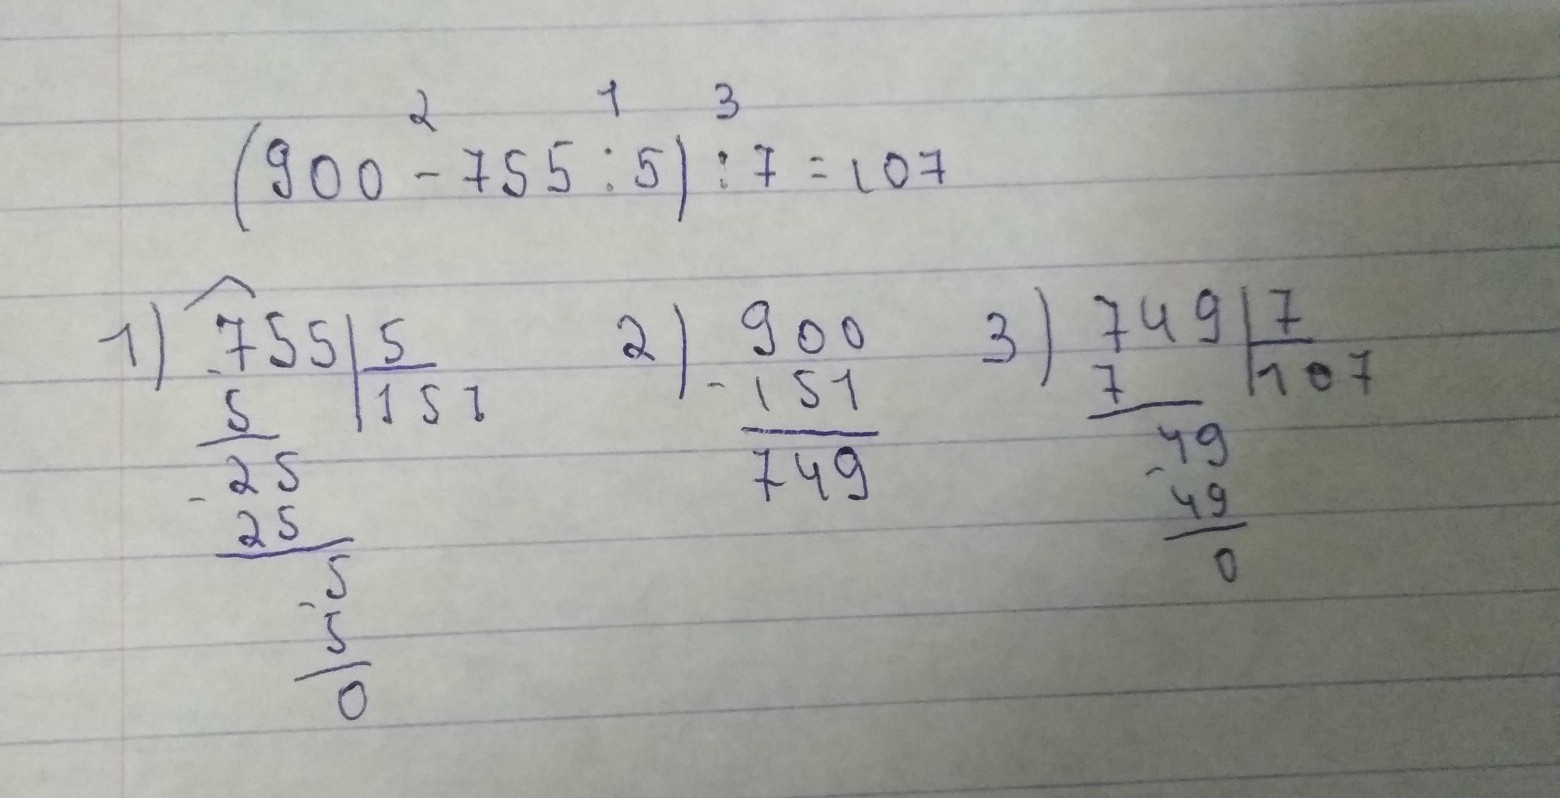 2 1 3
(900 - 755 : 5) : 7 = 107
1) 755 | 5 2) 900 3) 749 | 7
5 151 - 151 7 107
- 25 749 49
25 - 49
- 5 0
5
0